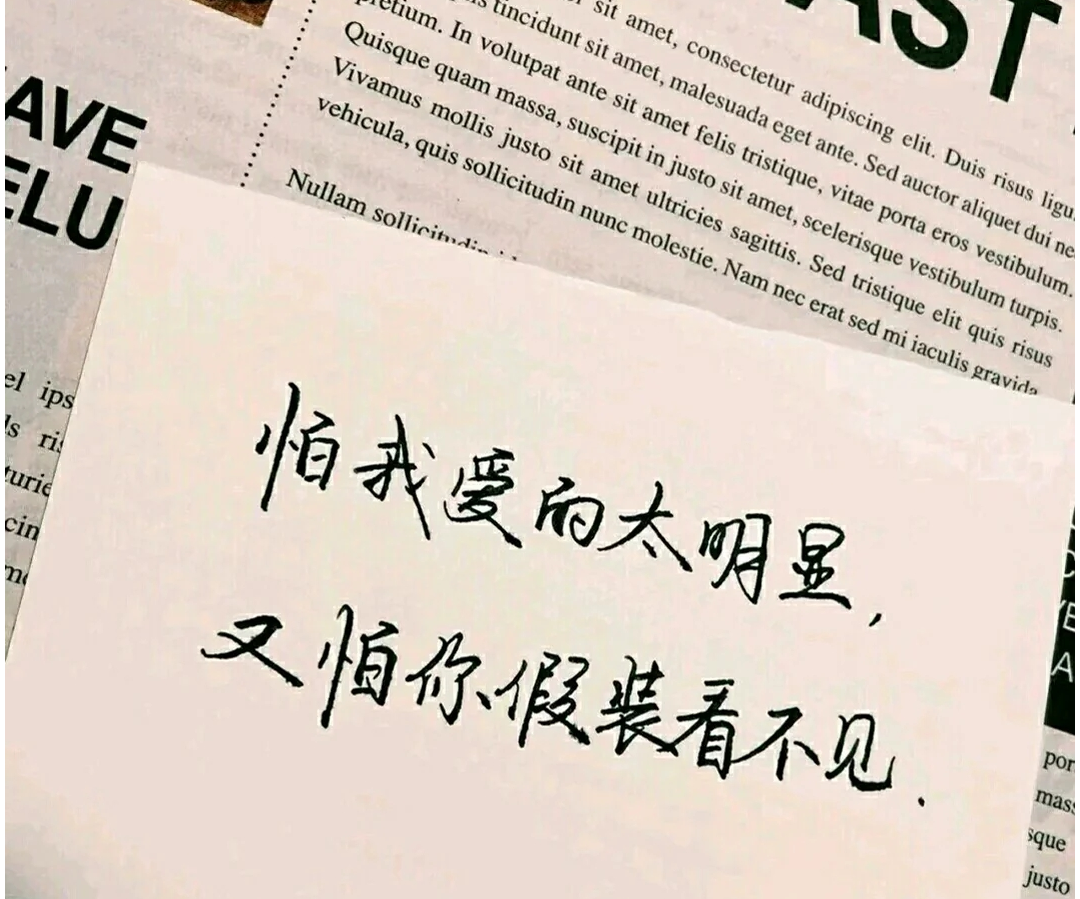 AST
AVE
ELU
sit amet, consectetur adipiscing elit. Duis risus ligu
tincidunt sit amet, malesuada eget ante. Sed auctor aliquet dui ne
pretium. In volutpat ante sit amet felis tristique, vitae porta eros vestibulum.
Quisque quam massa, suscipit in justo sit amet, scelerisque vestibulum turpis.
Vivamus mollis justo sit amet ultricies sagittis. Sed tristique elit quis risus
vehicula, quis sollicitudin nunc molestie. Nam nec erat sed mi iaculis gravida
Nullam sollicitudin
el ips
ls ris
turie
cin
mo
怕我爱的太明显,
又怕你假装看不见.
por
mass
sque
justo